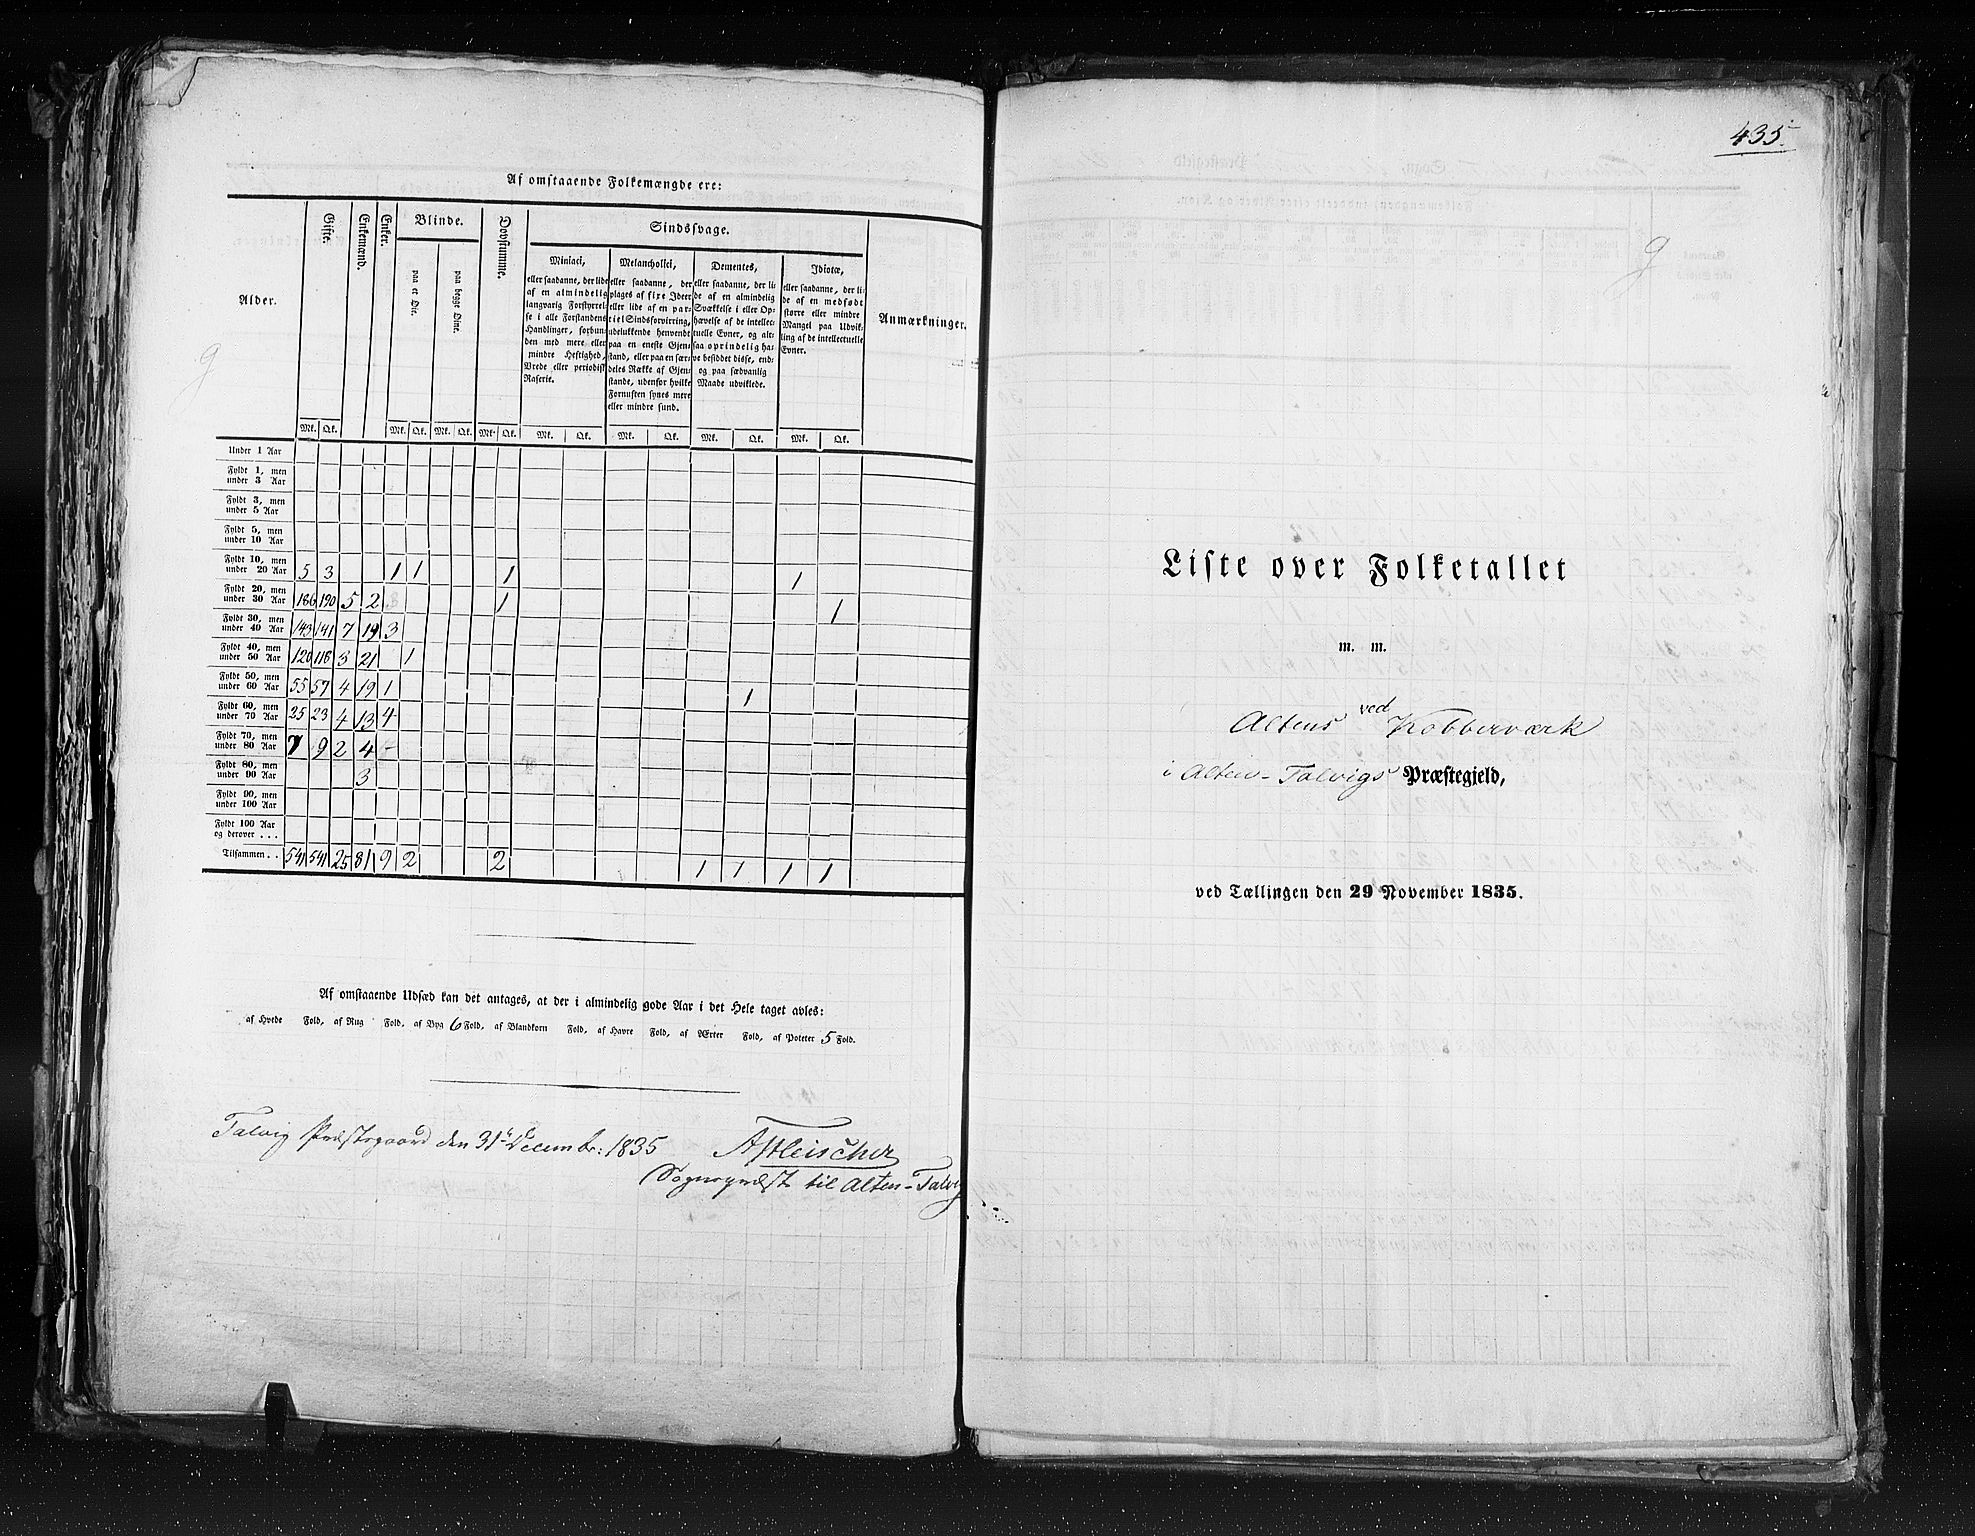 Af omstaaende Folkemængde ere:
Alder.
Gifte.
Enkemænd.
Enker.
Blinde.
paa et Øie.
paa begge Øine.
Døvstumme.
Sindssvage.
Miniaci,
eller saadanne, der lide
af en almindelig
langvarig Forstyrrel-
se i alle Forstandens
Handlinger, forbun-
den med mere eller
mindre Heftighed,
Vrede eller periodisk
Raserie.
Melancholici,
eller saadanne, der
plages af fixe Ideer
eller lide af en par-
tiel Sindsforvirring,
udelukkende henvendt
paa en eneste Gjen-
stand, eller paa en sær-
deles Række af Gjen-
stande, udenfor hvilke
Fornuften synes mere
eller mindre sund.
Dementes,
eller saadanne, der li-
de af en almindelig
Svækkelse i eller Op-
hævelse af de intellec-
tuelle Evner, og alt-
saa oprindelig ha-
ve besiddet disse, end-
og paa sædvanlig
Maade udviklede.
Idiotæ,
eller saadanne, der li-
de af en medfødt
større eller mindre
Mangel paa Udvik-
ling af de intellectuelle
Evner.
Anmærkninger.
Mk. Qk. Mk. Qk. Mk. Qk. Mk. Qk. Mk. Qk. Mk. Qk. Mk. Qk. Mk. Qk.
Under 1 Aar
Fyldt 1, men
under 3 Aar
Fyldt 3, men
under 5 Aar
Fyldt 5, men
under 10 Aar
Fyldt 10, men
under 20 Aar 5 3 1 1 1 1
Fyldt 20, men
under 30 Aar 186 190 5 2 1 1
Fyldt 30, men
under 40 Aar 143 141 7 19 3
Fyldt 40, men
under 50 Aar 120 118 3 21 1
Fyldt 50, men
under 60 Aar 55 57 4 19 1 1
Fyldt 60, men
under 70 Aar 25 23 4 13 4
Fyldt 70, men
under 80 Aar 7 9 2 4 -
Fyldt 80, men
under 90 Aar 3
Fyldt 90, men
under 100 Aar
Fyldt 100 Aar
og derover . . .
Tilsammen . . 541 541 25 81 9 2 2 1 1 1 1
Af omstaaende Udsæd kan det antages, at der i almindelig gode Aar i det Hele taget avles:
af Hvede Fold, af Rug Fold, af Byg 6 Fold, af Blandkorn Fold, af Havre Fold, af Ærter Fold, af Poteter 5 Fold.
Talvig Præstegaard den 31te Decembr: 1835
A Fleischer
Sognepræst til Alten-Talvig
435
Liste over Folketallet
m. m.
ved
Altens Kobberværk
i Alten-Talvigs Præstegjeld,
ved Tællingen den 29 November 1835.